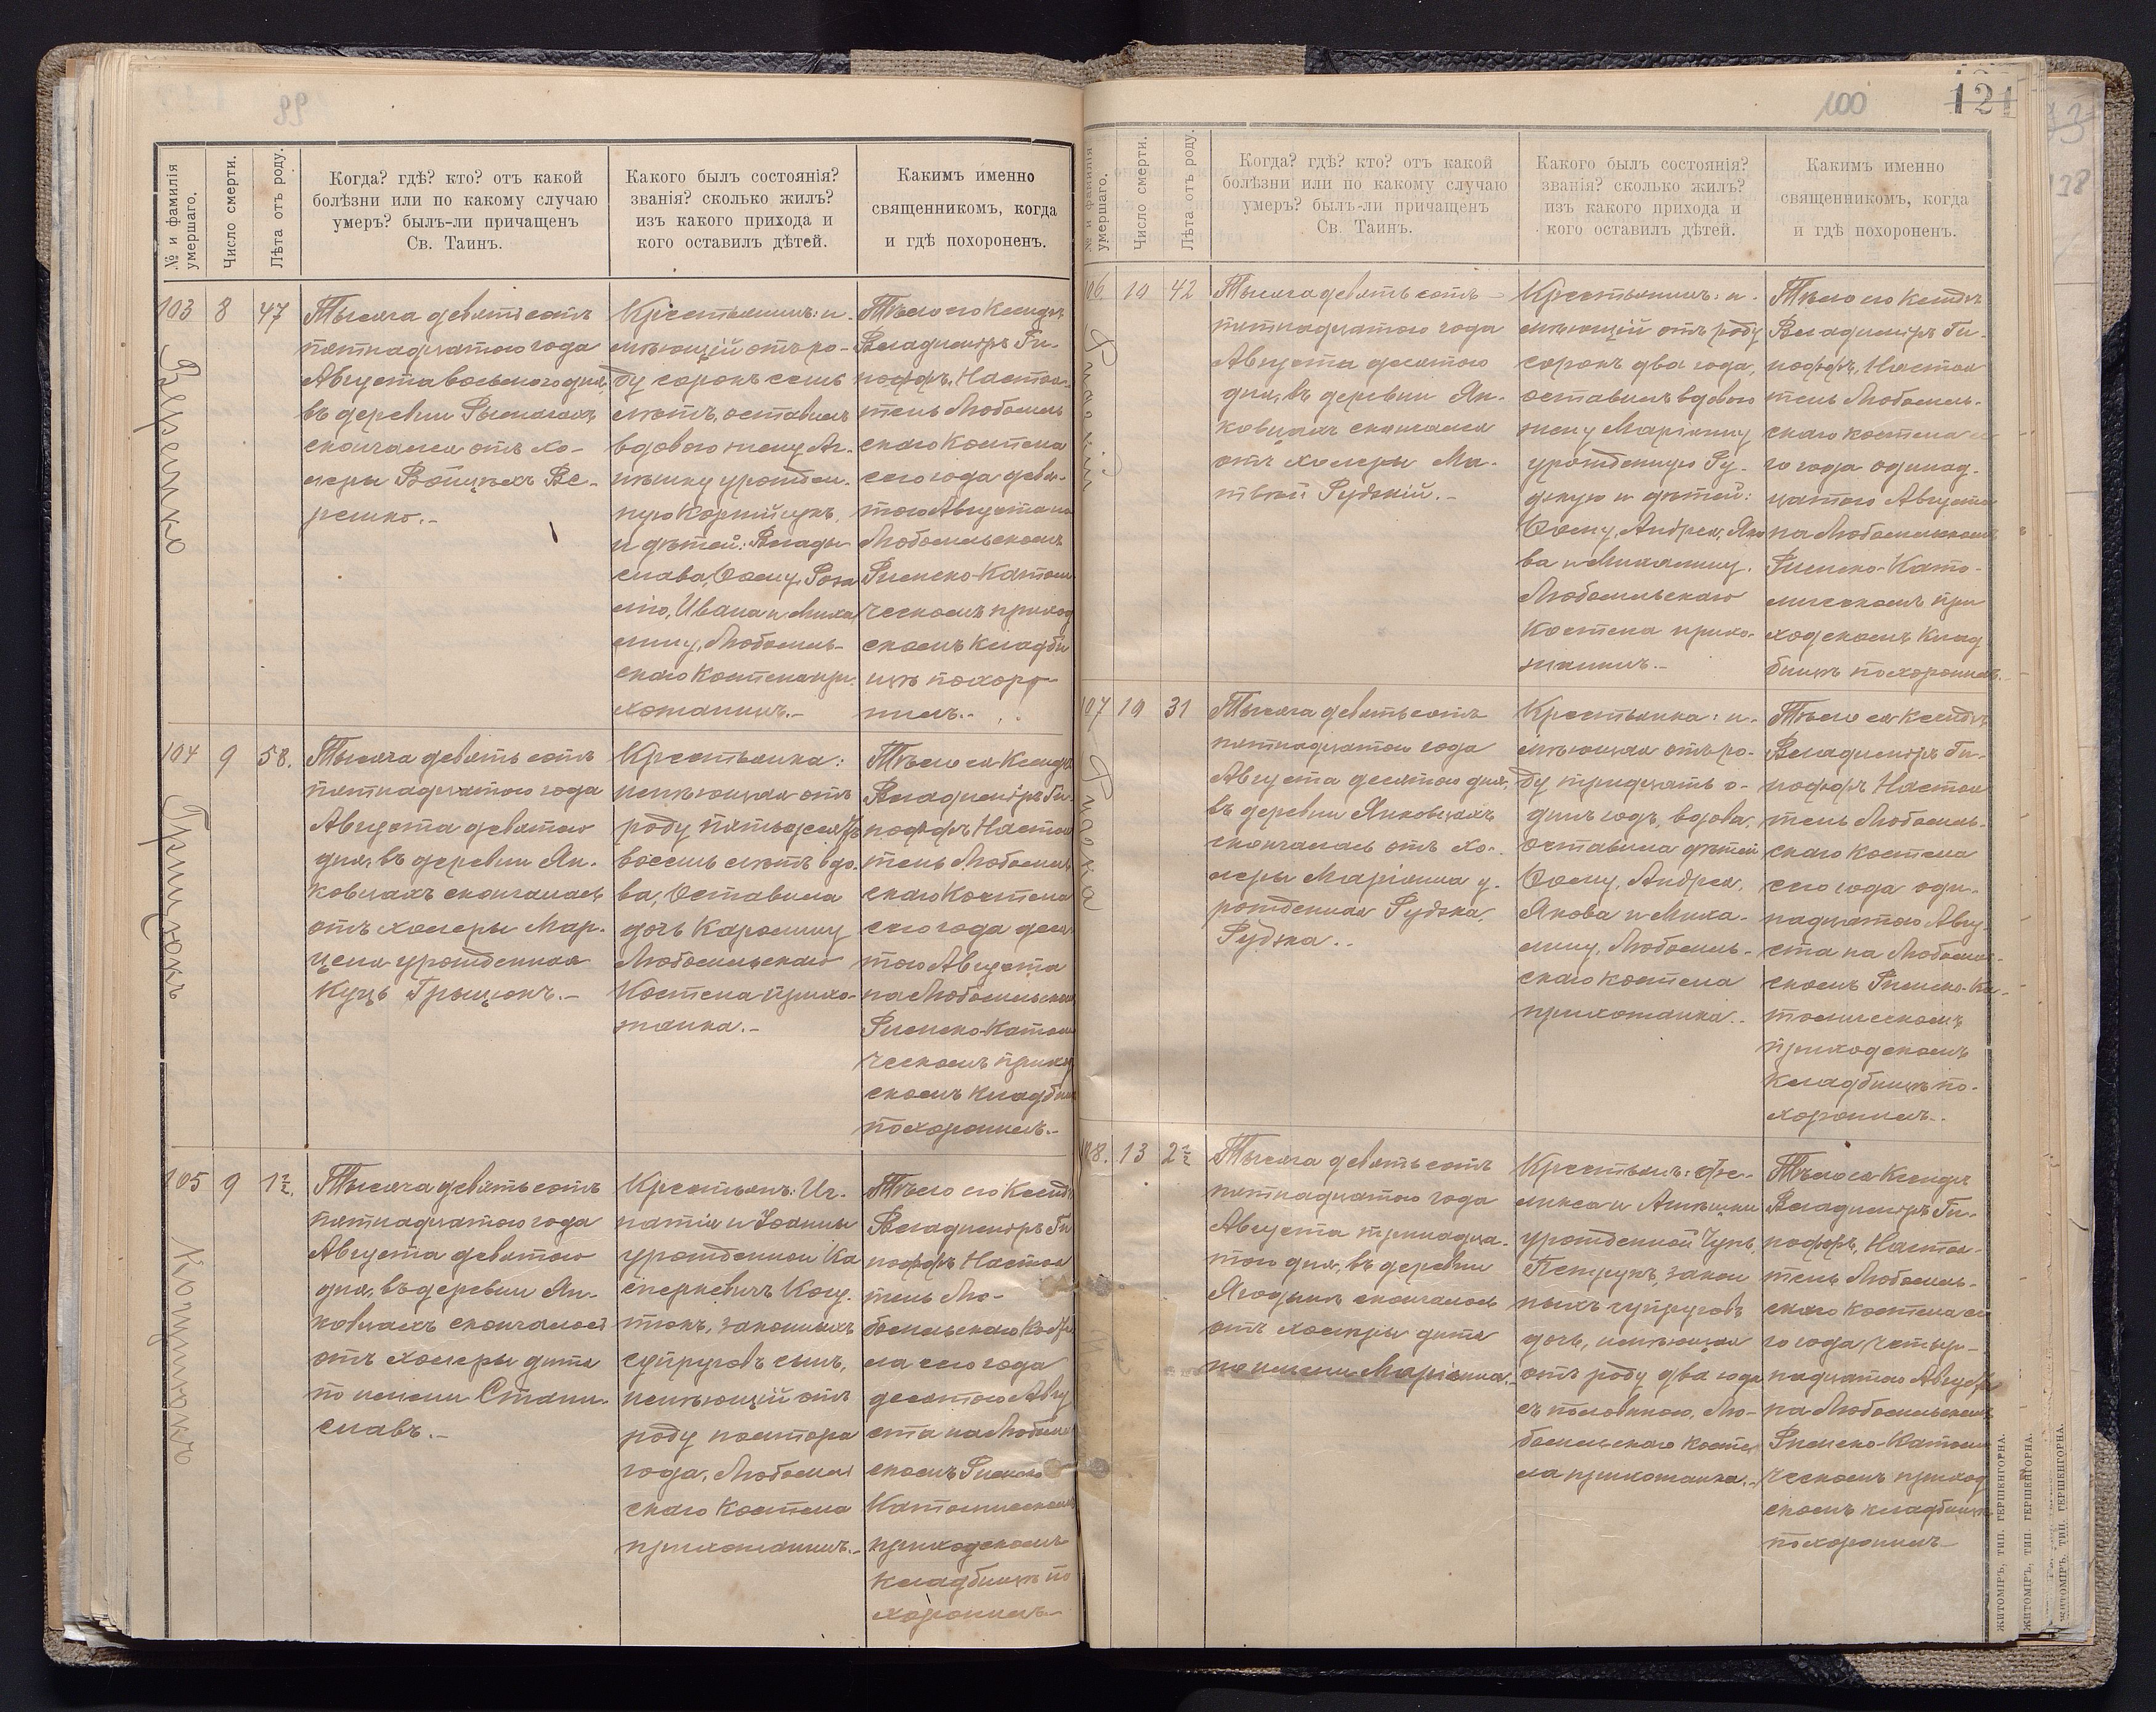 99
№ и фамилія умершаго.
Число смерти.
Лѣта отъ роду.
Когда? гдѣ? кто? отъ какой
болѣзни или по какому случаю
умеръ? былъ-ли причащенъ
Св. Таинъ.
Какого былъ состоянія?
званія? сколько жилъ?
изъ какого прихода и
кого оставилъ дѣтей.
Какимъ именно
священникомъ, когда
и гдѣ похороненъ.
103
8
47
Тысяча девятьсотъ
пятнадцатого года
Августа восьмого дня,
въ деревни
скончался отъ хо-
леры Войцѣхъ Ве-
решко.-
Крестьянинъ: и-
мѣющій отъ ро-
ду сорокъ семь
лѣтъ, оставилъ
вдовою жену Аг-
нѣшку урожден-
ную Корнійчукъ,
и дѣтей: Влади-
слава, Фому, Роза
лію, Ивана и Миха
лину, Любомль-
скаго костела при-
хожанинъ.-
Тѣло его Ксендзъ
Владиміръ Ги-
поффъ, Настоя-
тель Любомль
скаго Костела
сего года девя-
того Августа на
Любомльскомъ
Римско-Католи
ческомъ приход
скомъ кладби
щѣ похоро-
нилъ.-
104
Грицюкъ
9
58.
Тысяча девятьсотъ
пятнадцатого года
Августа девятого
дня, въ деревни Ян-
ковцахъ скончалась
отъ холеры Мар-
целя урожденная
Куць Грыцюкъ.-
Крестьянка:
имѣющая отъ
роду пятьдесятъ
восемь лѣтъ вдо-
ва, Оставила
дочь Каролину
Любомльскаго
Костела прихо-
жанка.-
Тѣло ея Ксендзъ
Владиміръ Ги-
поффъ Настоя
тель Любомль
скаго Костела
сего года деся
того Августа
на Любомльскомъ
Римско-Католи
ческомъ приход
скомъ кладбищѣ
похоронилъ.-
105
9
1½.
Тысяча девятьсотъ
пятнадцатого года
Августа девятого
дня, въ деревни Ян-
ковцахъ скончалось
отъ холеры дитя
по имени Стани-
славъ.-
Крестьянъ: Иг-
натія и Іоанны
урожденной Ка
сперкевичъ
законныхъ
супруговъ сынъ,
имѣющій отъ
роду полтора
года, Любомль
скаго Костела
прихожанинъ.-
Тѣло его Ксендзъ
Владиміръ Ги
поффъ Настоя
тель Лю-
бомльскаго Косте
ла сего года
десятого Авгу
ста на Любомль
скомъ Римско
Католическомъ
приходскомъ
кладбищѣ по
хоронилъ-
100
121
№ и фамилія умершаго.
Число смерти.
Лѣта отъ роду.
Когда? гдѣ? кто? отъ какой
болѣзни или по какому случаю
умеръ? былъ-ли причащенъ
Св. Таинъ.
Какого былъ состоянія?
званія? сколько жилъ?
изъ какого прихода и
кого оставилъ дѣтей.
Какимъ именно
священникомъ, когда
и гдѣ похороненъ.
106.
10
42
Тысяча девятьсотъ
пятнадцатого года
Августа десятого
дня, въ деревни Ян-
ковцахъ скончался
отъ холеры Ма-
твѣй Рудзкій.-
Крестьянинъ: и-
мѣющій отъ роду
сорокъ два года,
оставилъ вдовою
жену Маріанну
урожденную Ру-
дзкую и дѣтей:
Фому, Андрея, Яко
ва и Михалину,
Любомльскаго
Костела прихо-
жанинъ.-
Тѣло его Ксендзъ
Владиміръ Ги-
поффъ, Настоя
тель Любомль-
скаго костела се
го года одинад-
цатого Августа
на Любомльскомъ
Римско-Като-
лическомъ при
ходскомъ клад
бищѣ похоронилъ.
107
Рудзка
10
31
Тысяча девятьсотъ
пятнадцатого года
Августа десятого дня,
въ деревни Янковцахъ
скончалась отъ хо-
леры Маріанна у-
рожденная Рудзка,
Рудзка..
Крестьянка: и-
мѣющая отъ ро-
ду тридцать о-
динъ годъ, вдова,
Оставила дѣтей
Фому, Андрея,
Якова и Миха-
лину, Любомль-
скаго костела
прихожанка..
Тѣло ея Ксендзъ
Владиміръ Ги-
поффъ Настоя
тель Любомль-
скаго костела
сего года оди-
надцатого Авгу-
ста на Любомль-
скомъ Римско-Ка-
толическомъ
приходскомъ
кладбищѣ по-
хоронилъ..
108.
13
2½
Тысяча девятьсотъ
пятнадцатого года
Августа тринадца-
того дня, въ деревни
Ягодынѣ скончалось
отъ холеры дитя
по имени Маріанна.
Крестьянъ: Фе-
ликса и Агнѣшки
урожденной
Петрукъ, закон
ныхъ супруговъ
дочь, имѣющая
отъ роду два года
съ половиною, Лю-
бомльскаго косте
ла прихожанка.-
Тѣло ея Ксендзъ
Владиміръ Ги-
поффъ, Настоя-
тель Любомль-
скаго костела се
го года четыр-
надцатого Августа
на Любомльскомъ
Римско-Католи
ческомъ приход
скомъ кладбищѣ
похоронилъ-
ЖИТОМІРЪ, ТИП. ГЕРШЕНГОРНА.
ЖИТОМІРЪ, ТИП. ГЕРШЕНГОРНА.
ЖИТОМІРЪ, ТИП. ГЕРШЕНГОРНА.